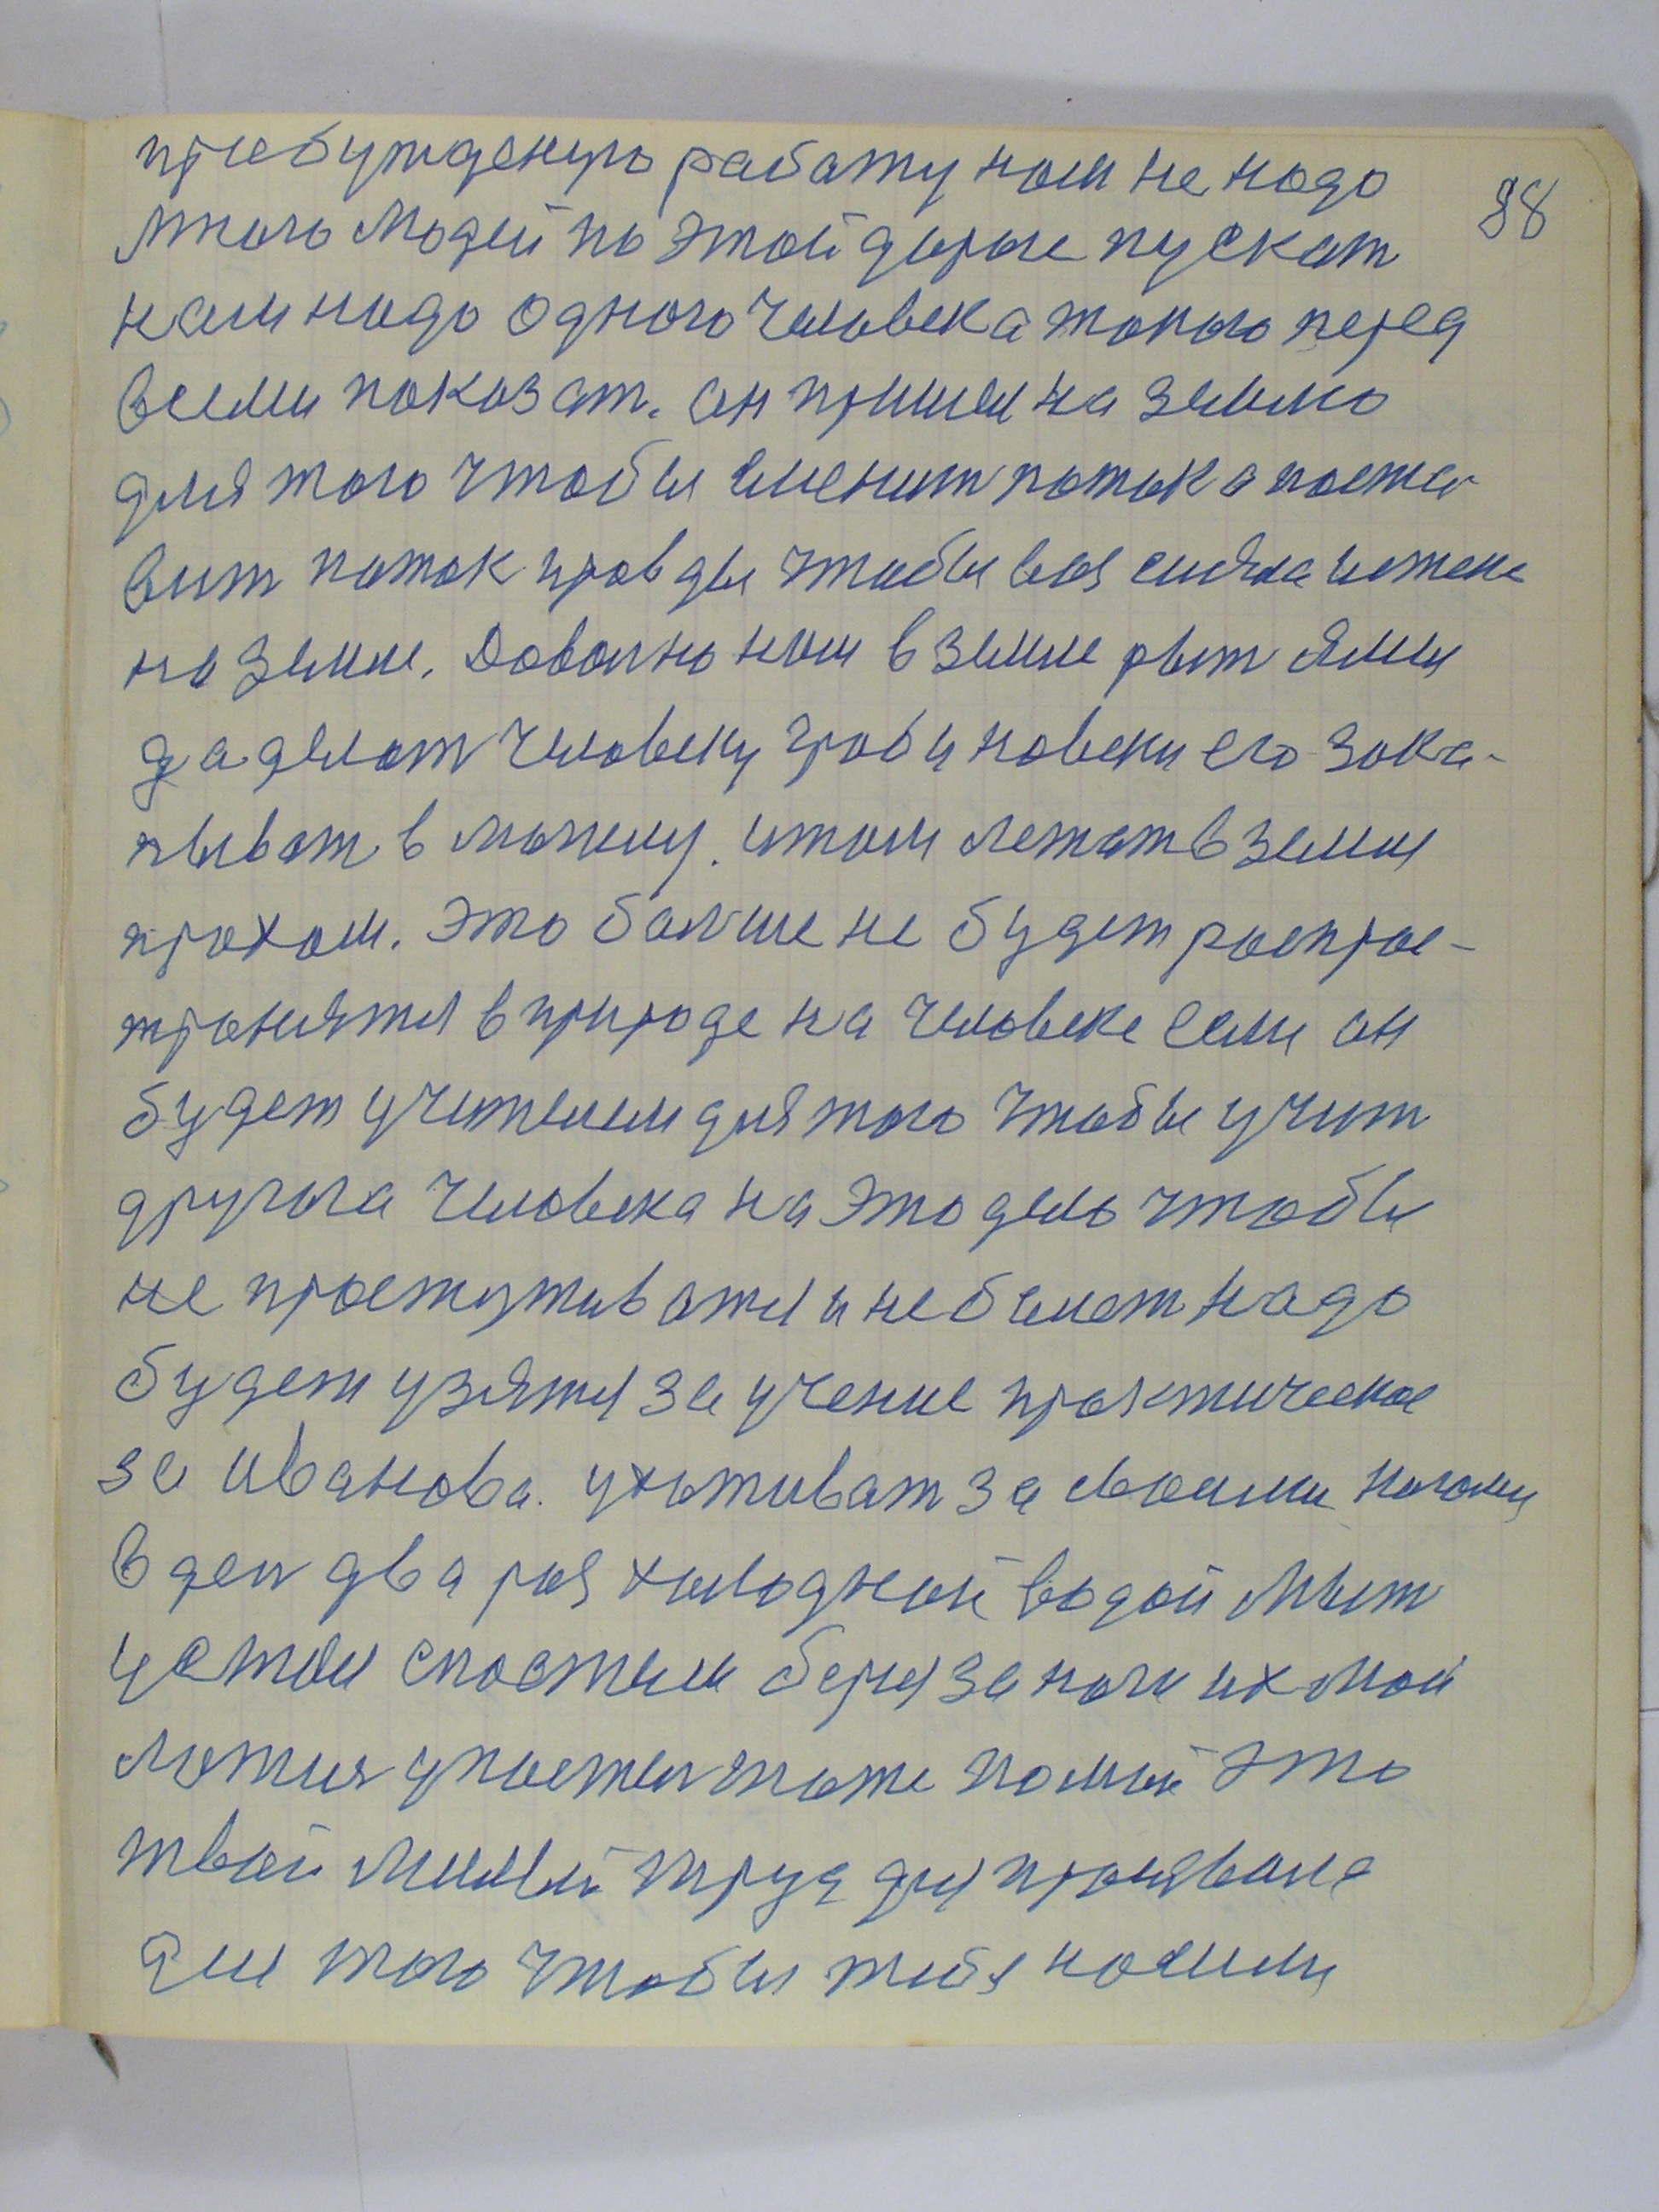 пребужденую работу нам не надо
88
много людей по этой дороге пускат
нам надо одного человека токого перед
всеми показат. он пришел на землю
для того чтобы сменит поток а поста-
вит поток правды чтобы вся сияла истена
на земле. Доволно нам в земле рыт ямы
да делат человеку гроб и навеки его зака-
пыват в могилу. и там лежат в земли
прахом. Это болше не будет распрос-
транятся в природе на человеке если он
будет учителем для того чтобы учит
другога человека на это дело чтобы
не простуживатся и не болет надо
будет узятся за учение практическое
за Иванова. ухаживат за своими ногами
в ден два раз холодной водой мыт
устал с постели берися за ноги их мой
ложися у постел тоже помый это
твой милый труд для
для того чтобы тебя